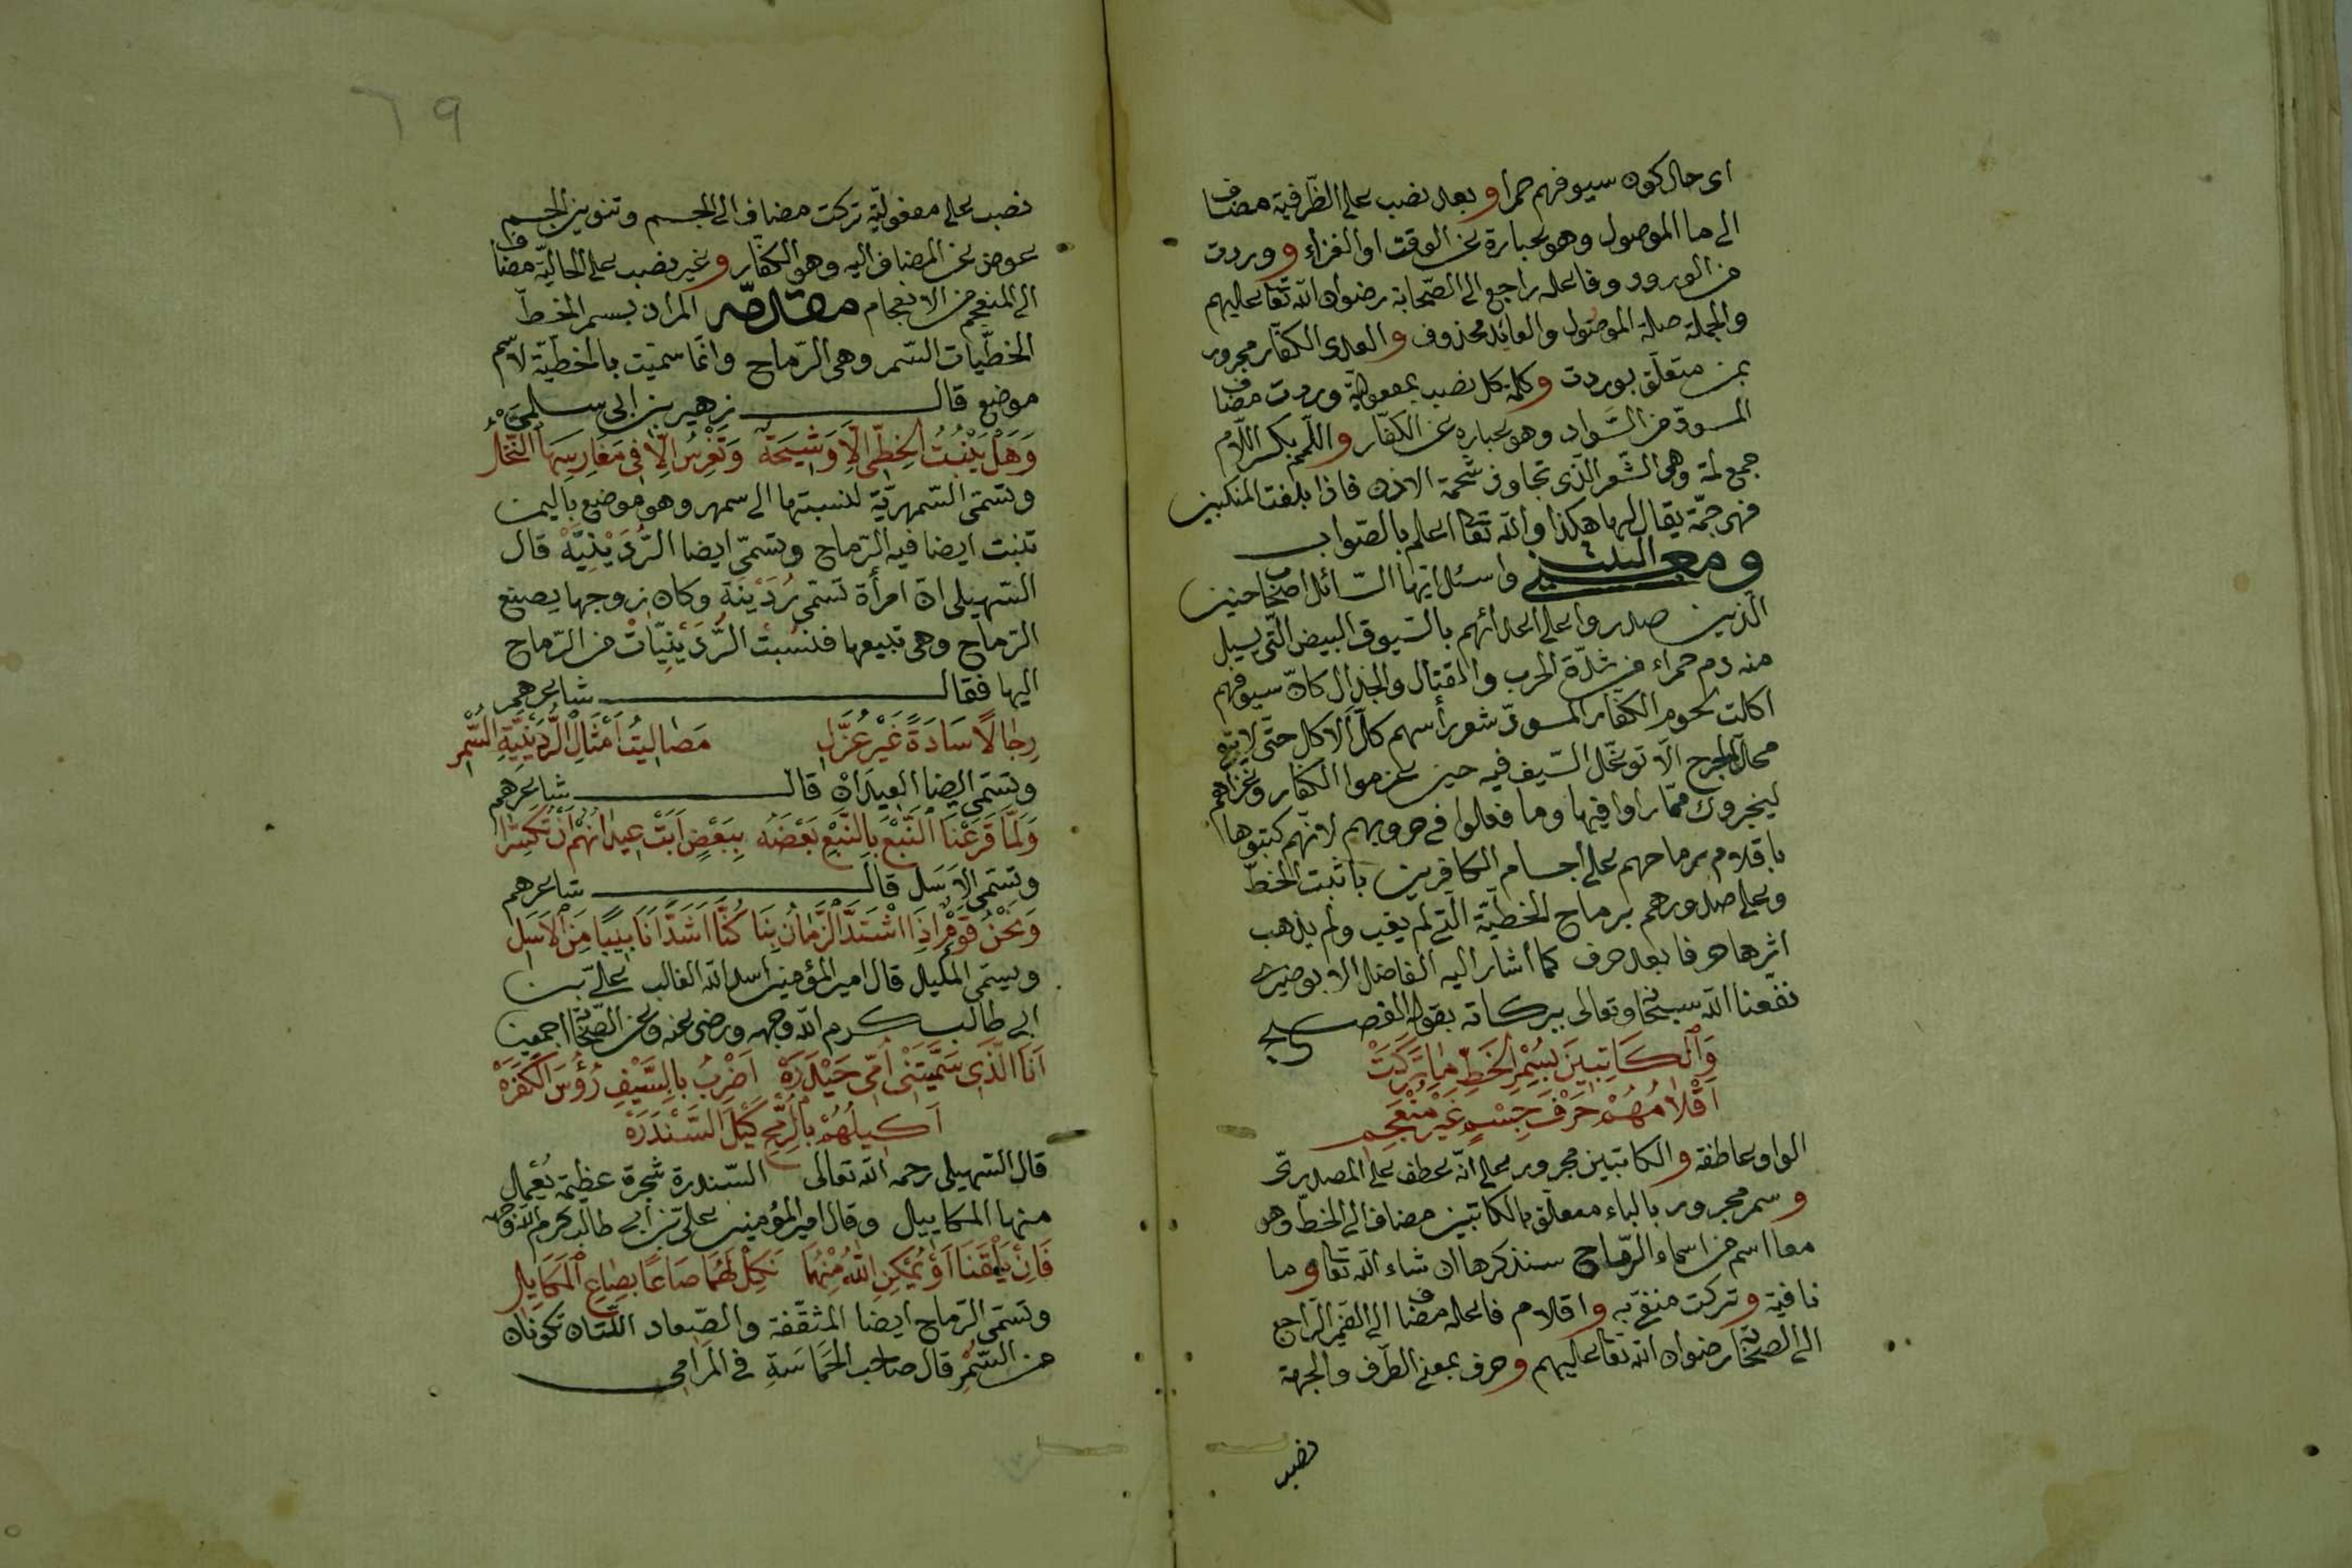 اى حال كون سيوفهم حمرا و بعد نصب على الظرفية مضاف
الى ما الموصول وهو عبارة عن الوقت او الغزاء و وردت
من الورود وفاعله راجع الى الصّحابة رضوان الله تعا عليهم
والجملة صلة الموصول والعائد محذوف و العدى الكفّار مجرور
بمن متعلّق بوردت و كلمة كل نصب بمفعوليّة وردت مضاف
المسودّ من السّواد وهو عبارة عن الكفّار و اللّمم بكسر اللّام
جمع لمة وهى الشّعر الّذى تجاوز شحمة الاذن فاذا بلغت المنكبين
فهى جمّة يقال لها هكذا والله تعا اعلم بالصّواب
ومعنى البيت واسئل ايّها السّائل اصحا حنين
الّذين صدروا على اعدائهم بالسّيوف البيض الّتى يسيل
منه دم حمراء من شدّة الحرب والمقتال والجدال كانّ سيوفهم
اكلت لحوم الكفّار المسودّ شعر رأسهم كلّ الاكل حتّى لا يبق
محلّ الجرح الّا توغّل السّيف فيه حين عزموا الكفار وغزاهم
ليخبروك ممّا راوا فيها وما فعلوا فى حروبهم لانّهم كتبوها
باقلام رماحهم على اجسام الكافرين باثبت الخطّ
وعلى صدورهم برماح الخطيّة الّتى لم يغب ولم يذهب
اثرها حرفا بعد حرف كما اشار اليه الفاضل الابوصيرى
نفعنا الله سبحا وتعالى ببركاته بقوله الفصيح
وَالْكَاتِبِينَ بِسُمْرِ الْخَطِّ مَا تَرَكَتْ
اَقْلَامُهُمْ حَرْفَ جِسْمٍ غَيْرَ مُنْعَجِمِ
الواو عاطفة و الكاتبين مجرور على انّه عطف على المصدرى
و سمر مجرور بالباء متعلّق بالكاتبين مضاف الى الخطّ وهو
معا اسم من اسماء الرّماح سنذكرها ان شاء الله تعا و ما
نافية و تركت منفىّ به و اقلام فاعله مضاف الى الضّمير الرّاجع
الى الصّحا رضوان الله تعا عليهم و حرف بمعنى الطّرف والجهة
نصب
٦٩
نصب على مفعوليّة تركت مضاف الى الجسم وتنوين الجسم
عوض عن المضاف اليه وهو الكفّار و غير نصب على الحاليّة مضاف
الى المنعجم من الانعجام مقدمة المراد بسمر الخطّ
الخطّيّات السّمر وهى الرّماح وانّما سمّيت بالخطيّة لاسم
موضع قال زهير بن ابى سلمى
وَهَلْ يُنْبِتُ الْخَطِّىَّ اِلَّا وَشِيجَهُ وَتُغْرَسُ اِلَّا فِى مَغَارِسِهَا النَّخْلُ
وتسمّى السّمهريّة لنسبتها الى سمهر وهو موضع باليمن
تنبت ايضا فيه الرّماح وتسمّى ايضا الرُّدَيْنِيَّةَ قال
السّهيلى انّ امرأة تسمّى رُدَيْنَةَ وكان زوجها يصنع
الرّماح وهى تبيعها فنسبت الرُّدَيْنِيَّاتْ من الرّماح
اليها فقال شاعرهم
رِجَالًا سَادَةً غَيْرَ عُزَّلِ مَصَالِيتُ اَمْثَالِ الرُّدَيْنِيَّةِ السُّمْرِ
وتسمّى ايضا العيدان قال شاعرهم
وَلَمَّا قَرَعْنَا النَّبْعَ بِالنَّبْعِ بَعْضَهُ بِبَعْضٍ اَبَتْ عِيدَانُهُمْ اَنْ تَكَسَّرَا
وتسمّى الاَسَل قال شاعرهم
وَنَحْنُ قَوْمٌ اِذَا اشْتَدَّ الزَّمَانُ بِنَا كُنَّا اَشَدَّ اَنَابِيبًا مِنَ الْاَسَلِ
ويسمّى المكيل قال امير المؤمنين اسد الله الغالب علىّ بن
ابى طالب كرم الله وجهه ورضى عنه وعن الصّحا اجمعين
اَنَا الَّذِى سَمَّتْنِى اُمِّى حَيْدَرَهْ اَضْرِبُ بِالسَّيْفِ رُؤُسَ الْكَفَرَهْ
اَكِيلُهُمْ بِالرُّمْحِ كَيْلَ السَّنْدَرَهْ
قال السّهيلى رحمه الله تعالى السّندرة شجرة عظيمة يُعمل
منها المكاييل وقال امير المؤمنين علىّ بن ابى طالب كرم الله وجهه
فَاِنْ يَلْقَنَا اَوْ يُمْكِنِ اللهُ مِنْهُمَا نَكِلْ لَهُمَا صَاعًا بِصَاعِ الْمَكَايِلِ
وتسمّى الرّماح ايضا المثقّفة والصّعاد اللّتان تكونان
من السّمر قال صاحب الحَمَاسَةِ فى المَرَامى